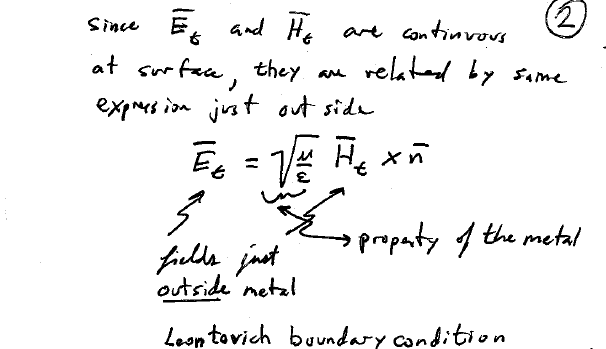 ②
since E̅ₜ and H̅ₜ are continuous
at surface, they are related by same
expression just out side
E̅ₜ = √(μ/ε) H̅ₜ × n̅
→ property of the metal
fields just
outside metal
Leontovich boundary condition